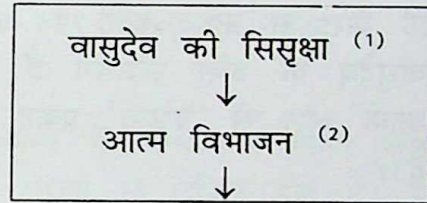 वासुदेव की सिसृक्षा (1)
↓
आत्म विभाजन (2)
↓